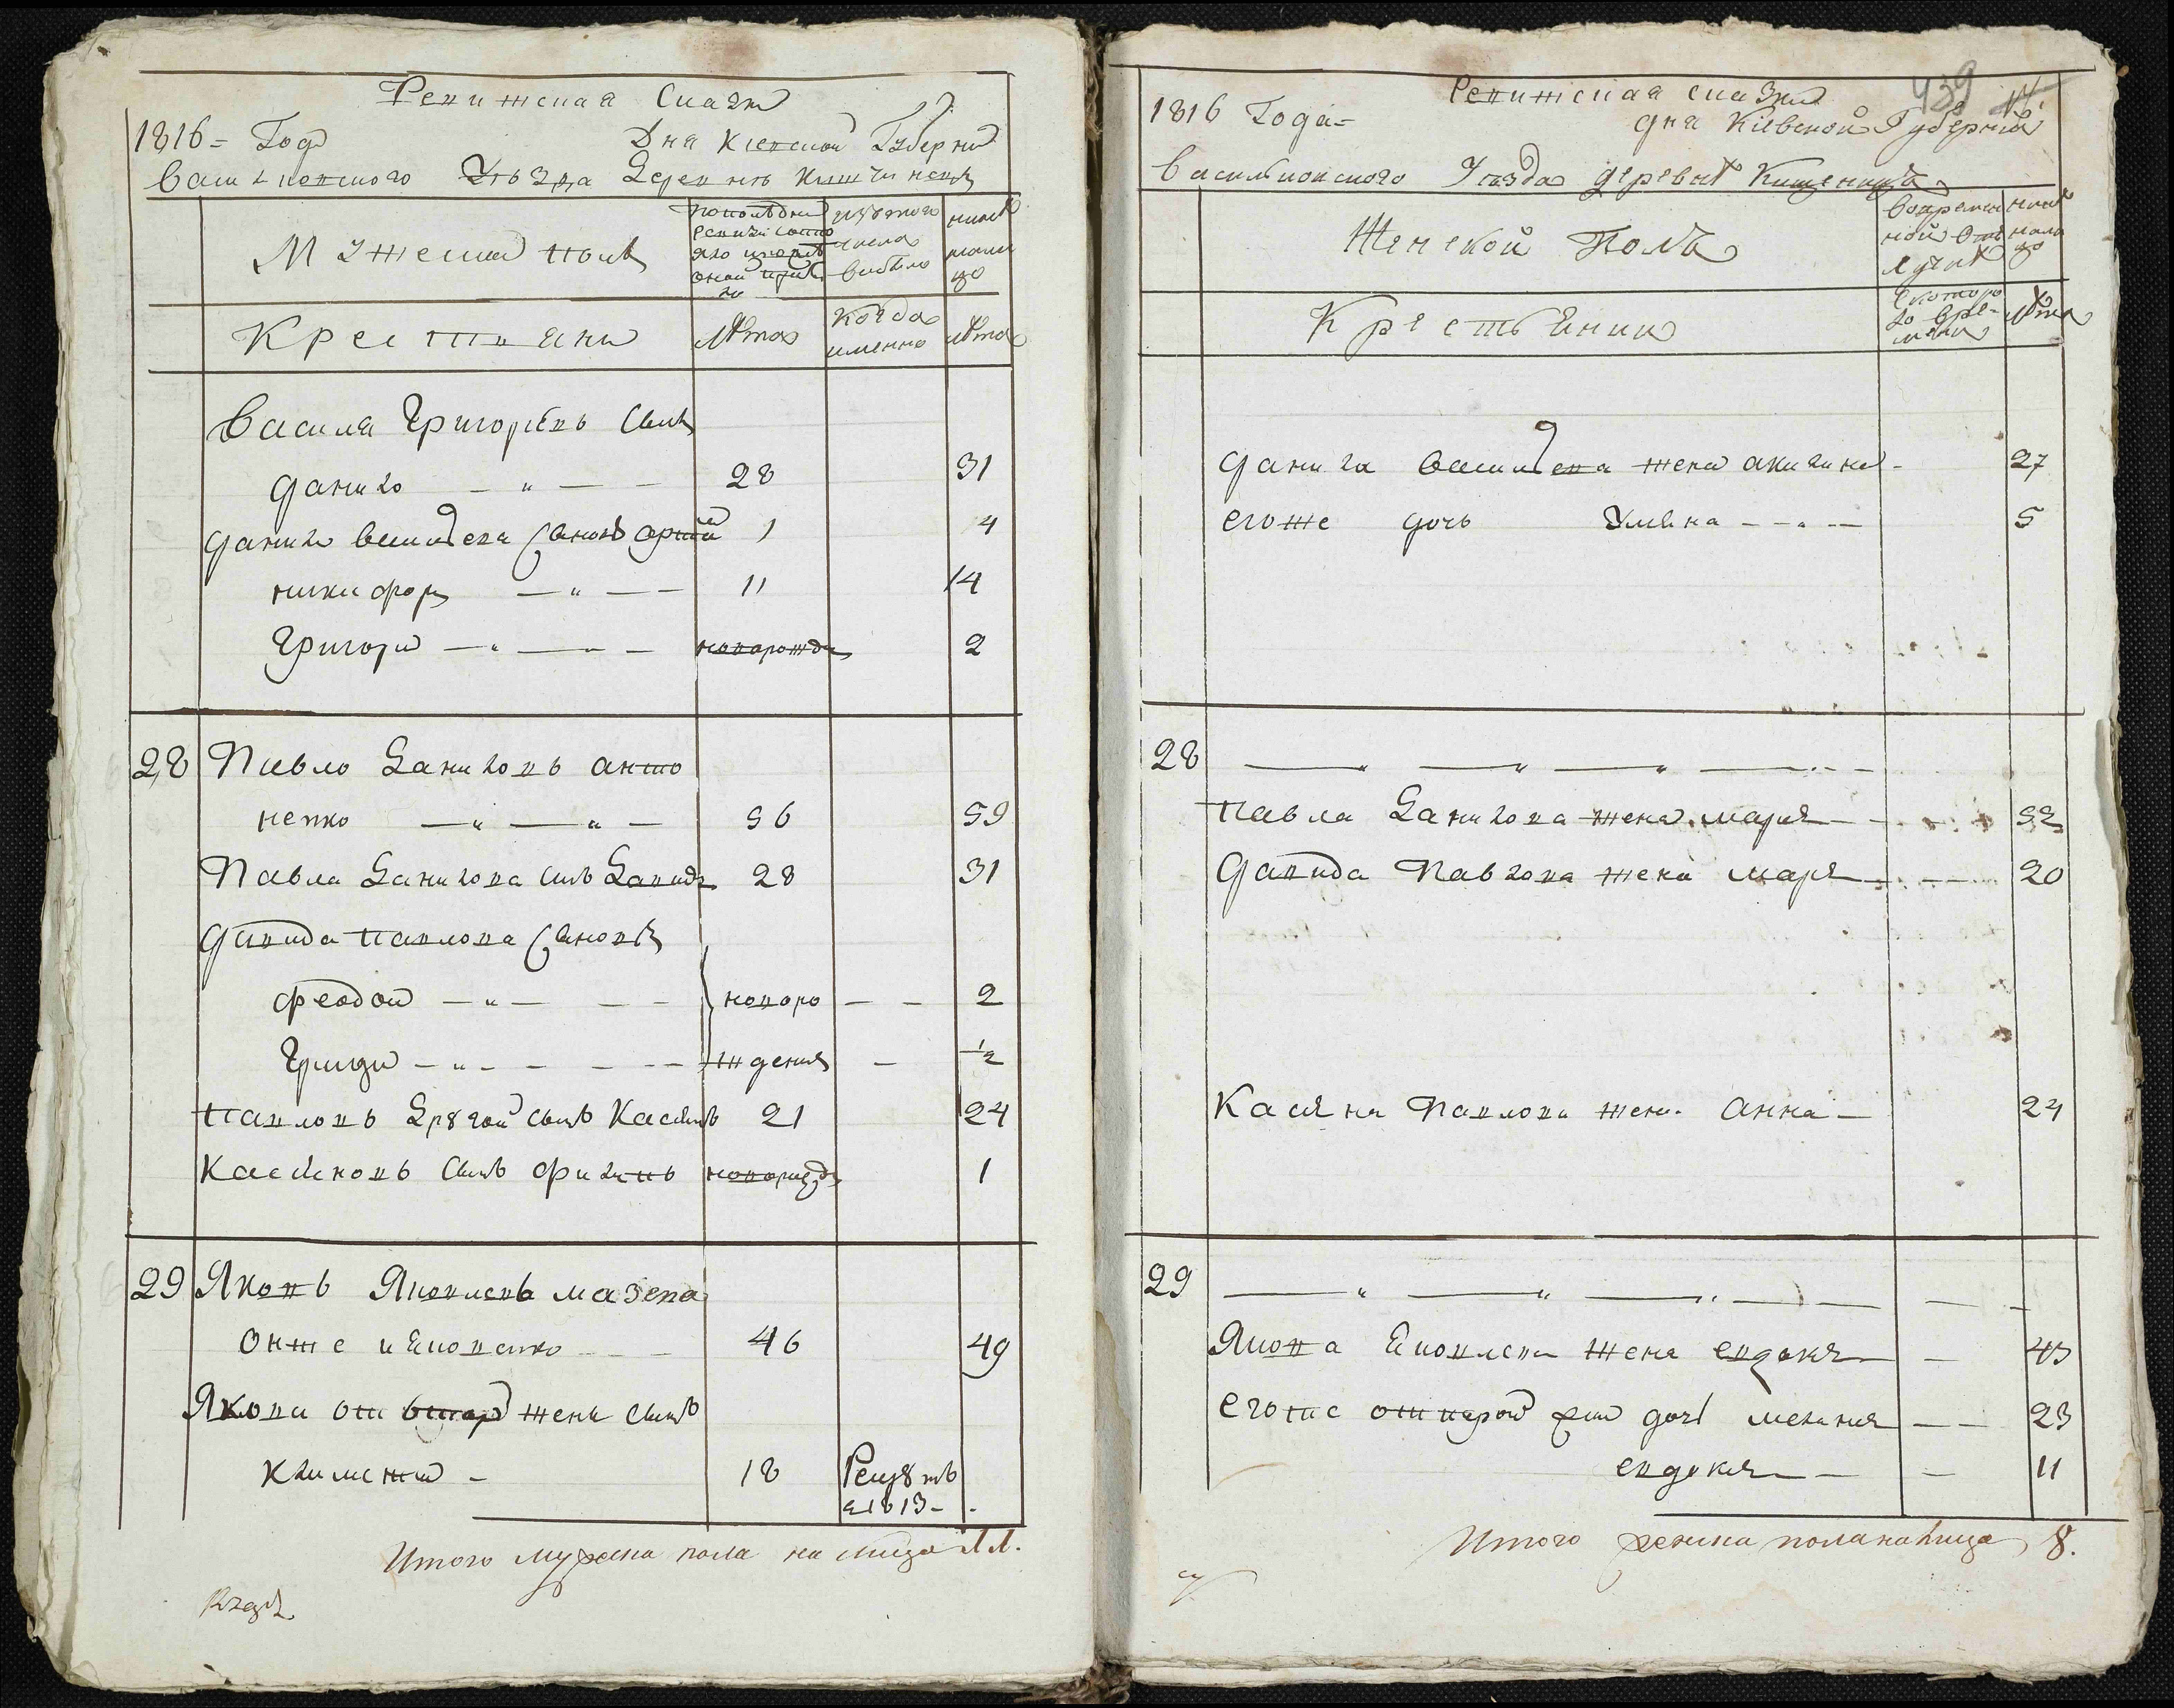 Ревижская Сказт
1816= Год Дня Киевской Губерни
васильковского Уьезда Деревнь Кишчинець
Мужеский полъ
По последней ревизии состо яло и после оной прибы ло
изътого числа выбыло
ныне на лицо
Крестьяни
Лѣта
Когда именно
Лѣта
Василя Григорїевъ Сынъ
данило — " — — 28 31
данила василїева Сыновѣ 1 4
никифоръ — " — — 11 14
Григори — " — " — новорожде 2
28 Павло Даниловъ анто
ненко — " — " — 56 59
Павла Данилова Сынъ Давидъ 28 31
Давида павлова Сыновѣ
Феодой — " — — — новоро — — 2
Григори — " — — — ждения — ½
павловъ Другой Сынъ Касянъ 21 24
Касяновъ Сынъ филипъ новорожде 1
29 Яковъ Яковлевъ мазепа
онже и Яковенко 46 49
Якова от второй жены Сынъ
Климентий - 18 Рекрутъ
в1813-
Итого мужска пола на лицо 11.
439
Ревижская сказка
1816 Года= дня Киевской Губернїи
Васильковского Уѣзда деревнѣ Кищенецъ
Женской Полъ
Вовремен ной отлучкѣ
ныне на лицо
Крестьянки
Скоторо го вре- мени
Лѣта
данила василїева жена акилина - 27
егоже дочь Уляна — — " — 5
28 — " — " — " — " — —
павла Данилова жена марья — 52
Давида Павлова жена марья — 20
Касяна Павлова жена Анна — 24
29 — " — " — " — — — —
Якова Яковлева жена евдокия — 43
егоже отпервой жены дочь мелания — — 23
евдокия — — 11
Итого женска пола налице 8.